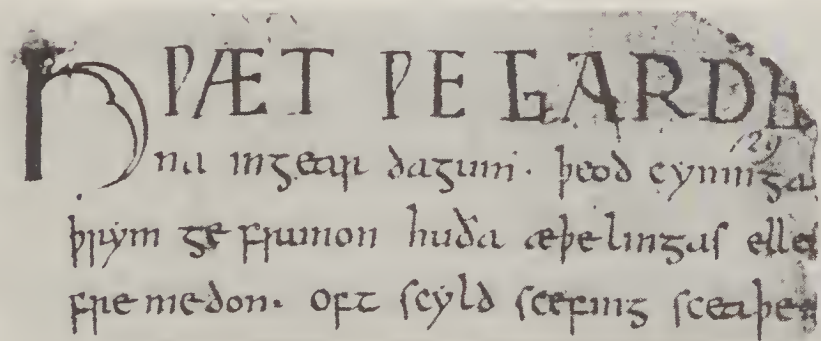 HǷÆT ǷE GARDE
na ingear dagum. þeod cyninga
þrym ge frunon huða æþelingas ellen
fremedon. oft scyld scefing sceaþen
129